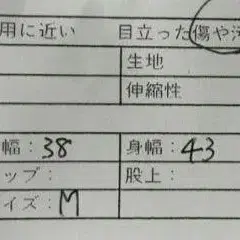 用に近い 目立った傷や
生地
伸縮性
幅：38 身幅：43
ップ： 股上：
イズ：M